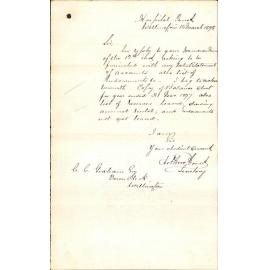 Hospital Board
Wellington 14 March 1898
Sir
In reply to your memorandum
of the 12th inst asking to be
furnished with any
of accounts also list of
I beg to enclose
herewith Copy of Balance Sheet
for year ended 31 Dec 1897 also
list of reserves leased, showing
annual rental, and reserves
not yet leased.
I am
Sir
Your obedient servant
Secretary
C. C. Graham Esq
Wellington